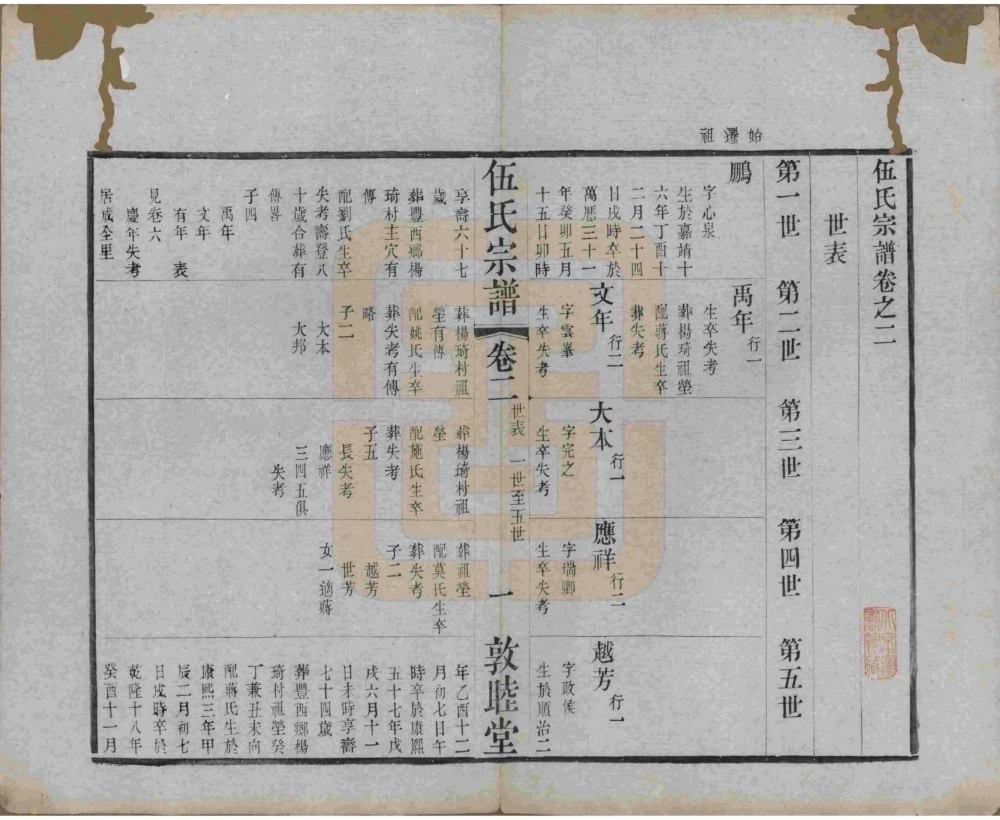 伍氏宗譜卷之二
世表
第一世
第二世
第三世
第四世
第五世
始遷祖
鵬
字心泉
生於嘉靖十
六年丁酉十
二月二十四
日戌時卒於
萬厯三十一
年癸卯五月
十五日卯時
享壽六十七
歲
葬豐西鄉楊
琦村主穴有
傳
配劉氏生卒
失考壽登八
十歲合葬有
傳畧
子四
禹年
文年
有年 表
見卷六
慶年失考
居成全里
禹年 行一
生卒失考
葬楊琦祖塋
配蔣氏生卒
葬失考
文年 行二
字雲峯
生卒失考
葬楊琦村祖
塋有傳
配姚氏生卒
葬失考有傳
略
子二
大本
大邦
大本 行一
字完之
生卒失考
葬楊琦村祖
塋
配施氏生卒
葬失考
子五
長失考
應祥
三四五俱
失考
應祥 行二
字瑞卿
生卒失考
葬祖塋
配莫氏生卒
葬失考
子二
越芳
世芳
女一適蔣
越芳 行一
字政侯
生於順治二
年乙酉十二
月初七日午
時卒於康熙
五十七年戊
戌六月十一
日未時享壽
七十四歲
葬豐西鄉楊
琦村祖塋癸
丁兼丑未向
配蔣氏生於
康熙三年甲
辰二月初七
日戌時卒於
乾隆十八年
癸酉十一月
伍氏宗譜
卷二
世表 一世至五世
一
敦睦堂